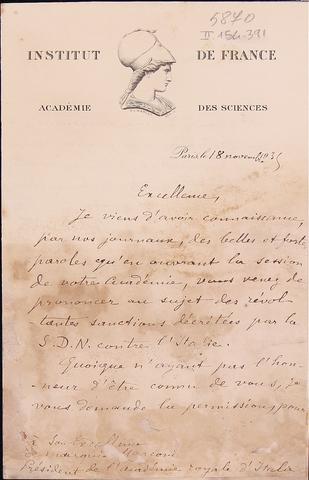 5870
II 154-391
INSTITUT DE FRANCE
ACADÉMIE DES SCIENCES
Paris le 18 novembre 35
Excellence,
Je viens d'avoir connaissance,
par nos journaux, des belles et fortes
paroles qu'en ouvrant la session
de votre Académie, vous venez de
prononcer au sujet des révol-
tantes sanctions décrétées par la
S.D.N. contre l'Italie.
Quoique n'ayant pas l'hon-
neur d'être connu de vous, je
vous demande la permission, pour
à Son Excellence
le marquis Marconi
Président de l'académie royale d'Italie